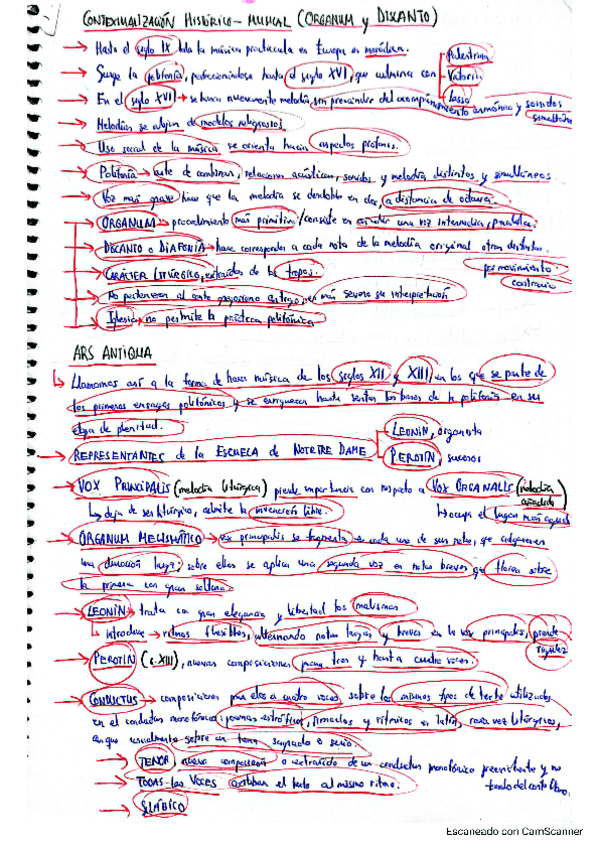 CONTEXTUALIZACIÓN HISTÓRICO-MUSICAL (ORGANUM y DISCANTO)
→ Hasta el siglo IX toda la música producida en Europa es monódica.
→ Surge la polifonía, perfeccionándose hasta el siglo XVI, que culmina con Palestrina
Victoria
Lasso
→ En el siglo XVI → se busca nuevamente melodía sin prescindir del acompañamiento armónico y sonidos simultáneos
→ Melodías se alejan de modelos religiosos
→ Uso social de la música se orienta hacia aspectos profanos.
→ Polifonía → arte de combinar, relaciones acústicas, sonidos y melodías distintos y simultáneos
→ Voz más grave hace que la melodía se desdoble en dos, a distancia de octava.
→ ORGANUM → procedimiento más primitivo / consiste en una voz intermedia, paralela.
→ DISCANTO o DIAFONÍA → hace corresponder a cada nota de la melodía original otra distinta
por movimiento contrario
→ CARÁCTER LITÚRGICO, extraídos de los tropos.
→ No pertenecen al canto gregoriano antiguo, es más severa su interpretación
→ Iglesia no permite la práctica polifónica
ARS ANTIQUA
↳ Llamamos así a la forma de hacer música de los siglos XII y XIII, en los que se parte de
los primeros ensayos polifónicos y se enriquecen hasta sentar las bases de la polifonía en su
etapa de plenitud.
→ REPRESENTANTES de la ESCUELA DE NOTRE DAME
LEONIN, organista
PEROTIN, sucesor
→ VOX PRINCIPALIS (melodía litúrgica) pierde importancia con respecto a VOX ORGANALIS (melodía añadida)
↳ deja de ser litúrgico, admite la invención libre.
↳ ocupa el lugar más agudo
→ ORGANUM MELISMÁTICO → vox principalis se fragmenta en cada una de sus notas, que adquieren
una duración larga; sobre ellas se aplica una segunda voz en notas breves que florea sobre
la primera con gran soltura.
→ LEONIN → trata con gran elegancia y libertad los melismas
↳ introduce → ritmos flexibles, alternando notas largas y breves en la vox principalis, pierde rigidez
→ PEROTIN (s.XIII), nuevas composiciones para tres y hasta cuatro voces.
→ CONDUCTUS → composiciones para dos a cuatro voces sobre los mismos tipos de texto utilizados
en el conductus monofónico: poemas estróficos, rimados y rítmicos en latín, rara vez litúrgicos,
aunque usualmente sobre un tema sagrado o serio.
→ TENOR, nueva composición o extraído de un conductus monofónico preexistente y no
tomado del canto llano.
→ TODAS las VOCES cantaban el texto al mismo ritmo.
→ SILÁBICO
Escaneado con CamScanner